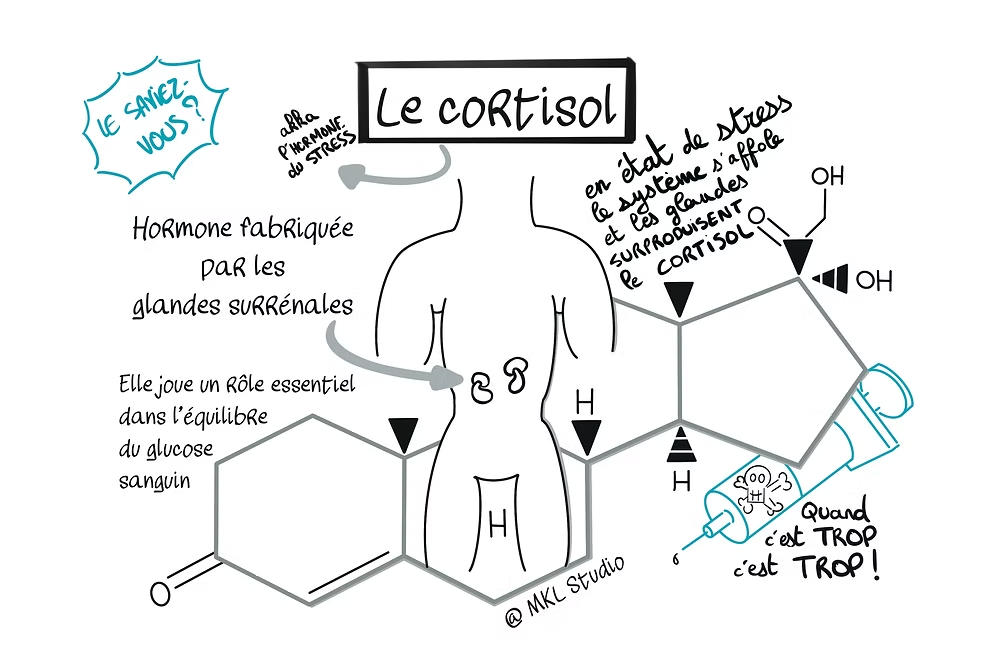 LE SAVIEZ-
VOUS?
Le CORTISOL
akka
l'HORMONE
du STRESS
en état de stress
le système s'affole
et les glandes
SURPRODUISENT
le CORTISOL
HORMONE fabRiquée
paR les
glandes suRRénales
Elle joue un Rôle essentiel
dans l'équilibRe
du glucose
sanguin
OH
O
OH
H
H
H
H
O
Quand
c'est TROP
c'est TROP!
@ MKL Studio